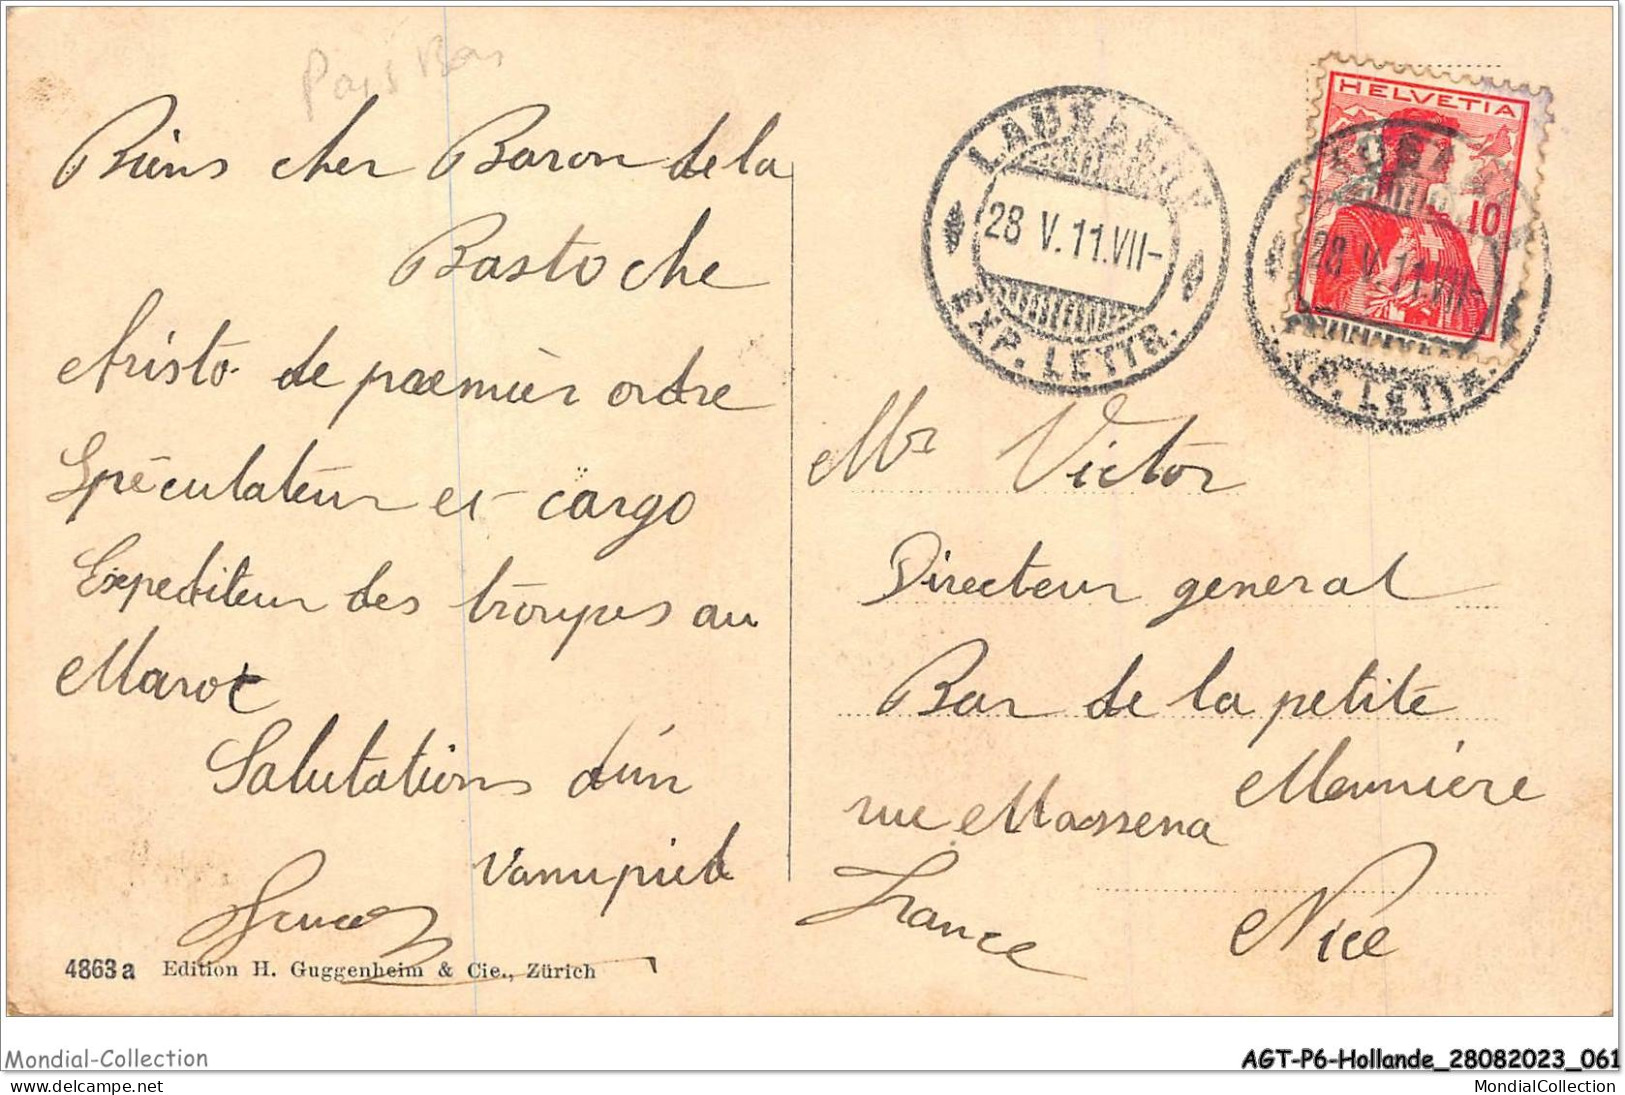 Pays Bas
Biens cher Baron de la
Bastoche
Aristo de premièr ordre
Spéculateur et cargo
Expediteur des troupes au
Maroc
Salutations d'un
vanupied
4863a Edition H. Guggenheim & Cie., Zürich
LAUSANNE
28 V.11.VII-
EXP. LETTR.
HELVETIA
10
28 V.11.VII-
EXP. LETTR.
Mr Victor
Directeur general
Bar de la petite
Mauniere
rue Massena
France Nice
Mondial-Collection
AGT-P6-Hollande_28082023_061
delcampe.net
MondialCollection